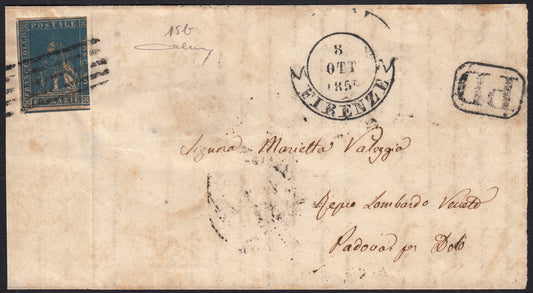 POSTALE
6 CRAZIE
15b
8
OTT
185
FIRENZE
PD
Signora Marietta Valeggia
Regno Lombardo Veneto
Padova per Dolo